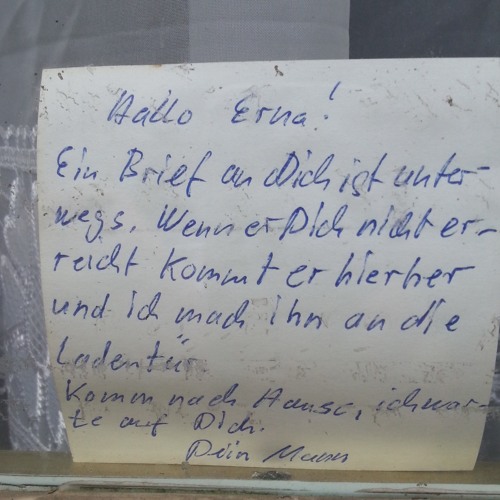 Hallo Erna!
Ein Brief an Dich ist unter-
wegs. Wenn er Dich nicht er-
reicht kommt er hierher
und ich mach ihn an die
Ladentür
Komm nach Hause, ich war-
te auf Dich.
Dein Mann